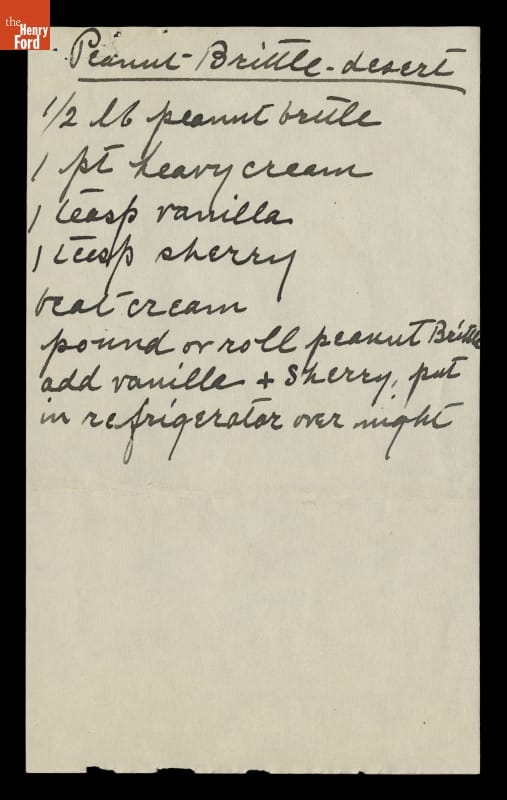 the
Henry
Ford
Peanut-Brittle-desert
1/2 lb peanut brittle
1 pt heavy cream
1 teasp vanilla
1 teesp sherry
beat cream
pound or roll peanut Brittle
add vanilla + Sherry, put
in refrigerator over night